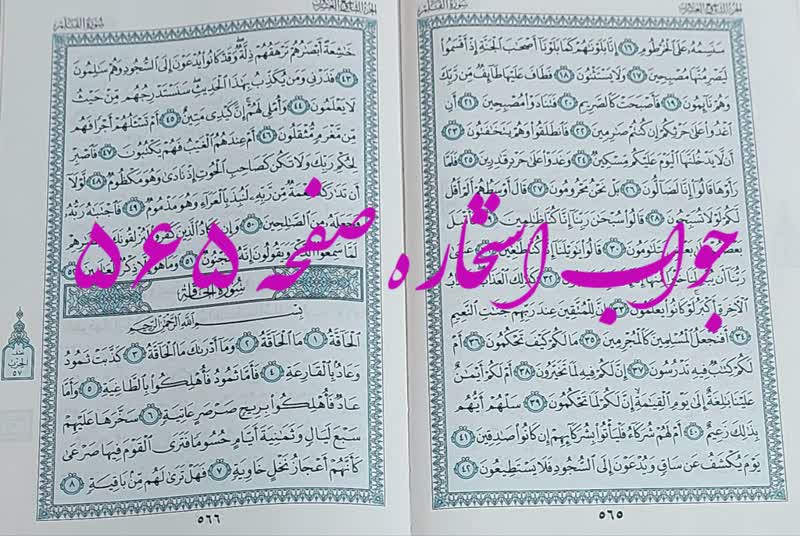 الجزء التاسع والعشرون
سورة القلم
سَنَسِمُهُ عَلَى الْخُرْطُومِ ١٦ إِنَّا بَلَوْنَاهُمْ كَمَا بَلَوْنَا أَصْحَابَ الْجَنَّةِ إِذْ أَقْسَمُوا
لَيَصْرِمُنَّهَا مُصْبِحِينَ ١٧ وَلَا يَسْتَثْنُونَ ١٨ فَطَافَ عَلَيْهَا طَائِفٌ مِّن رَّبِّكَ
وَهُمْ نَائِمُونَ ١٩ فَأَصْبَحَتْ كَالصَّرِيمِ ٢٠ فَتَنَادَوْا مُصْبِحِينَ ٢١ أَنِ
اغْدُوا عَلَىٰ حَرْثِكُمْ إِن كُنتُمْ صَارِمِينَ ٢٢ فَانطَلَقُوا وَهُمْ يَتَخَافَتُونَ ٢٣
أَن لَّا يَدْخُلَنَّهَا الْيَوْمَ عَلَيْكُم مِّسْكِينٌ ٢٤ وَغَدَوْا عَلَىٰ حَرْدٍ قَادِرِينَ ٢٥ فَلَمَّا
رَأَوْهَا قَالُوا إِنَّا لَضَالُّونَ ٢٦ بَلْ نَحْنُ مَحْرُومُونَ ٢٧ قَالَ أَوْسَطُهُمْ أَلَمْ أَقُل
لَّكُمْ لَوْلَا تُسَبِّحُونَ ٢٨ قَالُوا سُبْحَانَ رَبِّنَا إِنَّا كُنَّا ظَالِمِينَ ٢٩ فَأَقْبَلَ
بَعْضُهُمْ يَتَلَاوَمُونَ ٣٠ قَالُوا يَا وَيْلَنَا إِنَّا كُنَّا طَاغِينَ ٣١ عَسَىٰ
رَبُّنَا أَن كَذَٰلِكَ الْعَذَابُ
الْآخِرَةِ أَكْبَرُ لَوْ كَانُوا يَعْلَمُونَ ٣٣ إِنَّ لِلْمُتَّقِينَ عِندَ رَبِّهِمْ جَنَّاتِ النَّعِيمِ
٣٤ أَفَنَجْعَلُ الْمُسْلِمِينَ كَالْمُجْرِمِينَ ٣٥ مَا لَكُمْ كَيْفَ تَحْكُمُونَ ٣٦ أَمْ
لَكُمْ كِتَابٌ فِيهِ تَدْرُسُونَ ٣٧ إِنَّ لَكُمْ فِيهِ لَمَا تَخَيَّرُونَ ٣٨ أَمْ لَكُمْ أَيْمَانٌ
عَلَيْنَا بَالِغَةٌ إِلَىٰ يَوْمِ الْقِيَامَةِ إِنَّ لَكُمْ لَمَا تَحْكُمُونَ ٣٩ سَلْهُمْ أَيُّهُم
بِذَٰلِكَ زَعِيمٌ ٤٠ أَمْ لَهُمْ شُرَكَاءُ فَلْيَأْتُوا بِشُرَكَائِهِمْ إِن كَانُوا صَادِقِينَ ٤١
يَوْمَ يُكْشَفُ عَن سَاقٍ وَيُدْعَوْنَ إِلَى السُّجُودِ فَلَا يَسْتَطِيعُونَ ٤٢
٥٦٥
جواب استخاره صفحه ۵۶۵
الجزء التاسع والعشرون
سورة القلم
خَاشِعَةً أَبْصَارُهُمْ تَرْهَقُهُمْ ذِلَّةٌ وَقَدْ كَانُوا يُدْعَوْنَ إِلَى السُّجُودِ وَهُمْ سَالِمُونَ
٤٣ فَذَرْنِي وَمَن يُكَذِّبُ بِهَٰذَا الْحَدِيثِ سَنَسْتَدْرِجُهُم مِّنْ حَيْثُ
لَا يَعْلَمُونَ ٤٤ وَأُمْلِي لَهُمْ إِنَّ كَيْدِي مَتِينٌ ٤٥ أَمْ تَسْأَلُهُمْ أَجْرًا فَهُم
مِّن مَّغْرَمٍ مُّثْقَلُونَ ٤٦ أَمْ عِندَهُمُ الْغَيْبُ فَهُمْ يَكْتُبُونَ ٤٧ فَاصْبِرْ
لِحُكْمِ رَبِّكَ وَلَا تَكُن كَصَاحِبِ الْحُوتِ إِذْ نَادَىٰ وَهُوَ مَكْظُومٌ ٤٨ لَّوْلَا
أَن تَدَارَكَهُ نِعْمَةٌ مِّن رَّبِّهِ لَنُبِذَ بِالْعَرَاءِ وَهُوَ مَذْمُومٌ ٤٩ فَاجْتَبَاهُ رَبُّهُ
فَجَعَلَهُ مِنَ الصَّالِحِينَ ٥٠ وَإِن يَكَادُ الَّذِينَ كَفَرُوا لَيُزْلِقُونَكَ
لَمَّا سَمِعُوا الذِّكْرَ وَيَقُولُونَ إِنَّهُ لَمَجْنُونٌ ٥١ وَمَا هُوَ إِلَّا ذِكْرٌ لِّلْعَالَمِينَ ٥٢
سُورَةُ الْحَاقَّةِ
بِسْمِ اللَّهِ الرَّحْمَٰنِ الرَّحِيمِ
الْحَاقَّةُ ١ مَا الْحَاقَّةُ ٢ وَمَا أَدْرَاكَ مَا الْحَاقَّةُ ٣ كَذَّبَتْ ثَمُودُ
وَعَادٌ بِالْقَارِعَةِ ٤ فَأَمَّا ثَمُودُ فَأُهْلِكُوا بِالطَّاغِيَةِ ٥ وَأَمَّا
عَادٌ فَأُهْلِكُوا بِرِيحٍ صَرْصَرٍ عَاتِيَةٍ ٦ سَخَّرَهَا عَلَيْهِمْ
سَبْعَ لَيَالٍ وَثَمَانِيَةَ أَيَّامٍ حُسُومًا فَتَرَى الْقَوْمَ فِيهَا صَرْعَىٰ
كَأَنَّهُمْ أَعْجَازُ نَخْلٍ خَاوِيَةٍ ٧ فَهَلْ تَرَىٰ لَهُم مِّن بَاقِيَةٍ ٨
٥٦٦
نصف
الحزب
٥٧